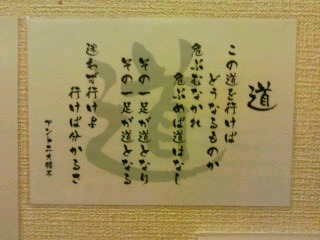 道
この道を行けば
どうなるものか
危ぶむなかれ
危ぶめば道はなし
その一足が道となり
その一足が道となる
迷わず行けよ
行けば分かるさ
アントニオ猪木
道